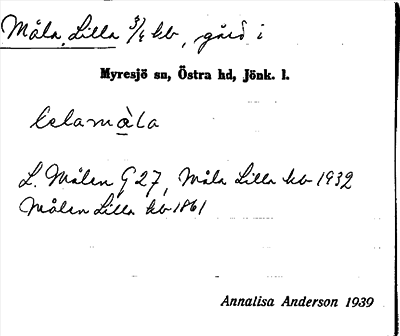 Måla, Lilla 3/4 kb, gård i
Myresjö sn, Östra hd, Jönk. l.
lelamåla
L. Målen G 27, Måla Lilla kb 1932
Målen Lilla kb 1861
Annalisa Anderson 1939